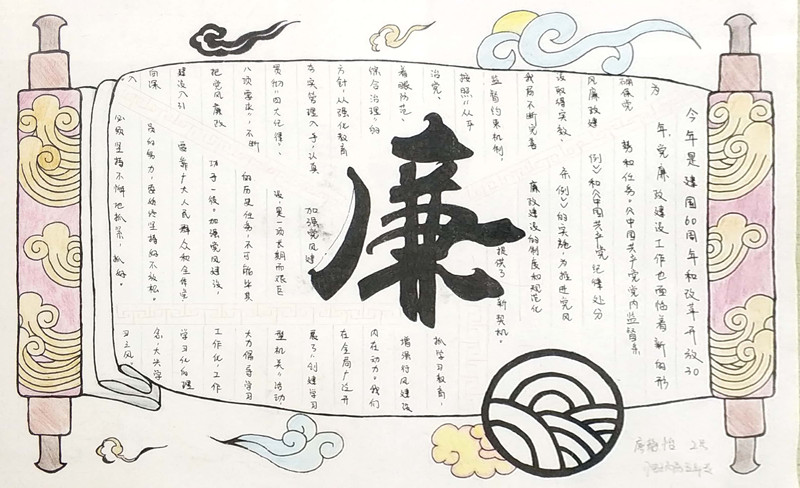 今年是建国60周年和改革开放30
年,党廉政建设工作也面临着新的形
势和任务。《中国共产党党内监督条
例》和《中国共产党纪律处分
条例》的实施,为推进党风
廉政建设的制度和规范化
提供了新契机。
为
确保党
风廉政建
设取得实效,
我局不断完善
监督约束机制,
按照"从
治党,
着眼防范,
综合治理,的
方针,从强化教育
夯实管理入手,认真
贯彻"四大纪律、
八项要求",不断
把党风廉政
建设入引
向深
入
廉
加强党风建
设,是一项长期而艰巨
的历史任务,不可能毕其
功于一役。加强党风建设,
需靠广大人民群众和全体党
员的努力,要始终坚持的不放松。
必须坚持不懈地抓紧,抓好。
抓学习教育,
增强行风建设
内在动力。我们
在全局广泛开
展了"创建学习
型机关"活动,
大力倡导学习
工作化,工作
学习化的理
念,大兴学
习之风